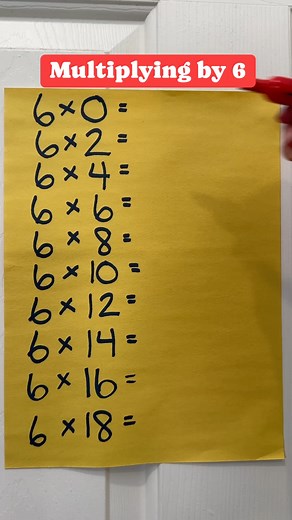 Multiplying by 6
6×0=
6×2=
6×4=
6×6=
6×8=
6×10=
6×12=
6×14=
6×16=
6×18=